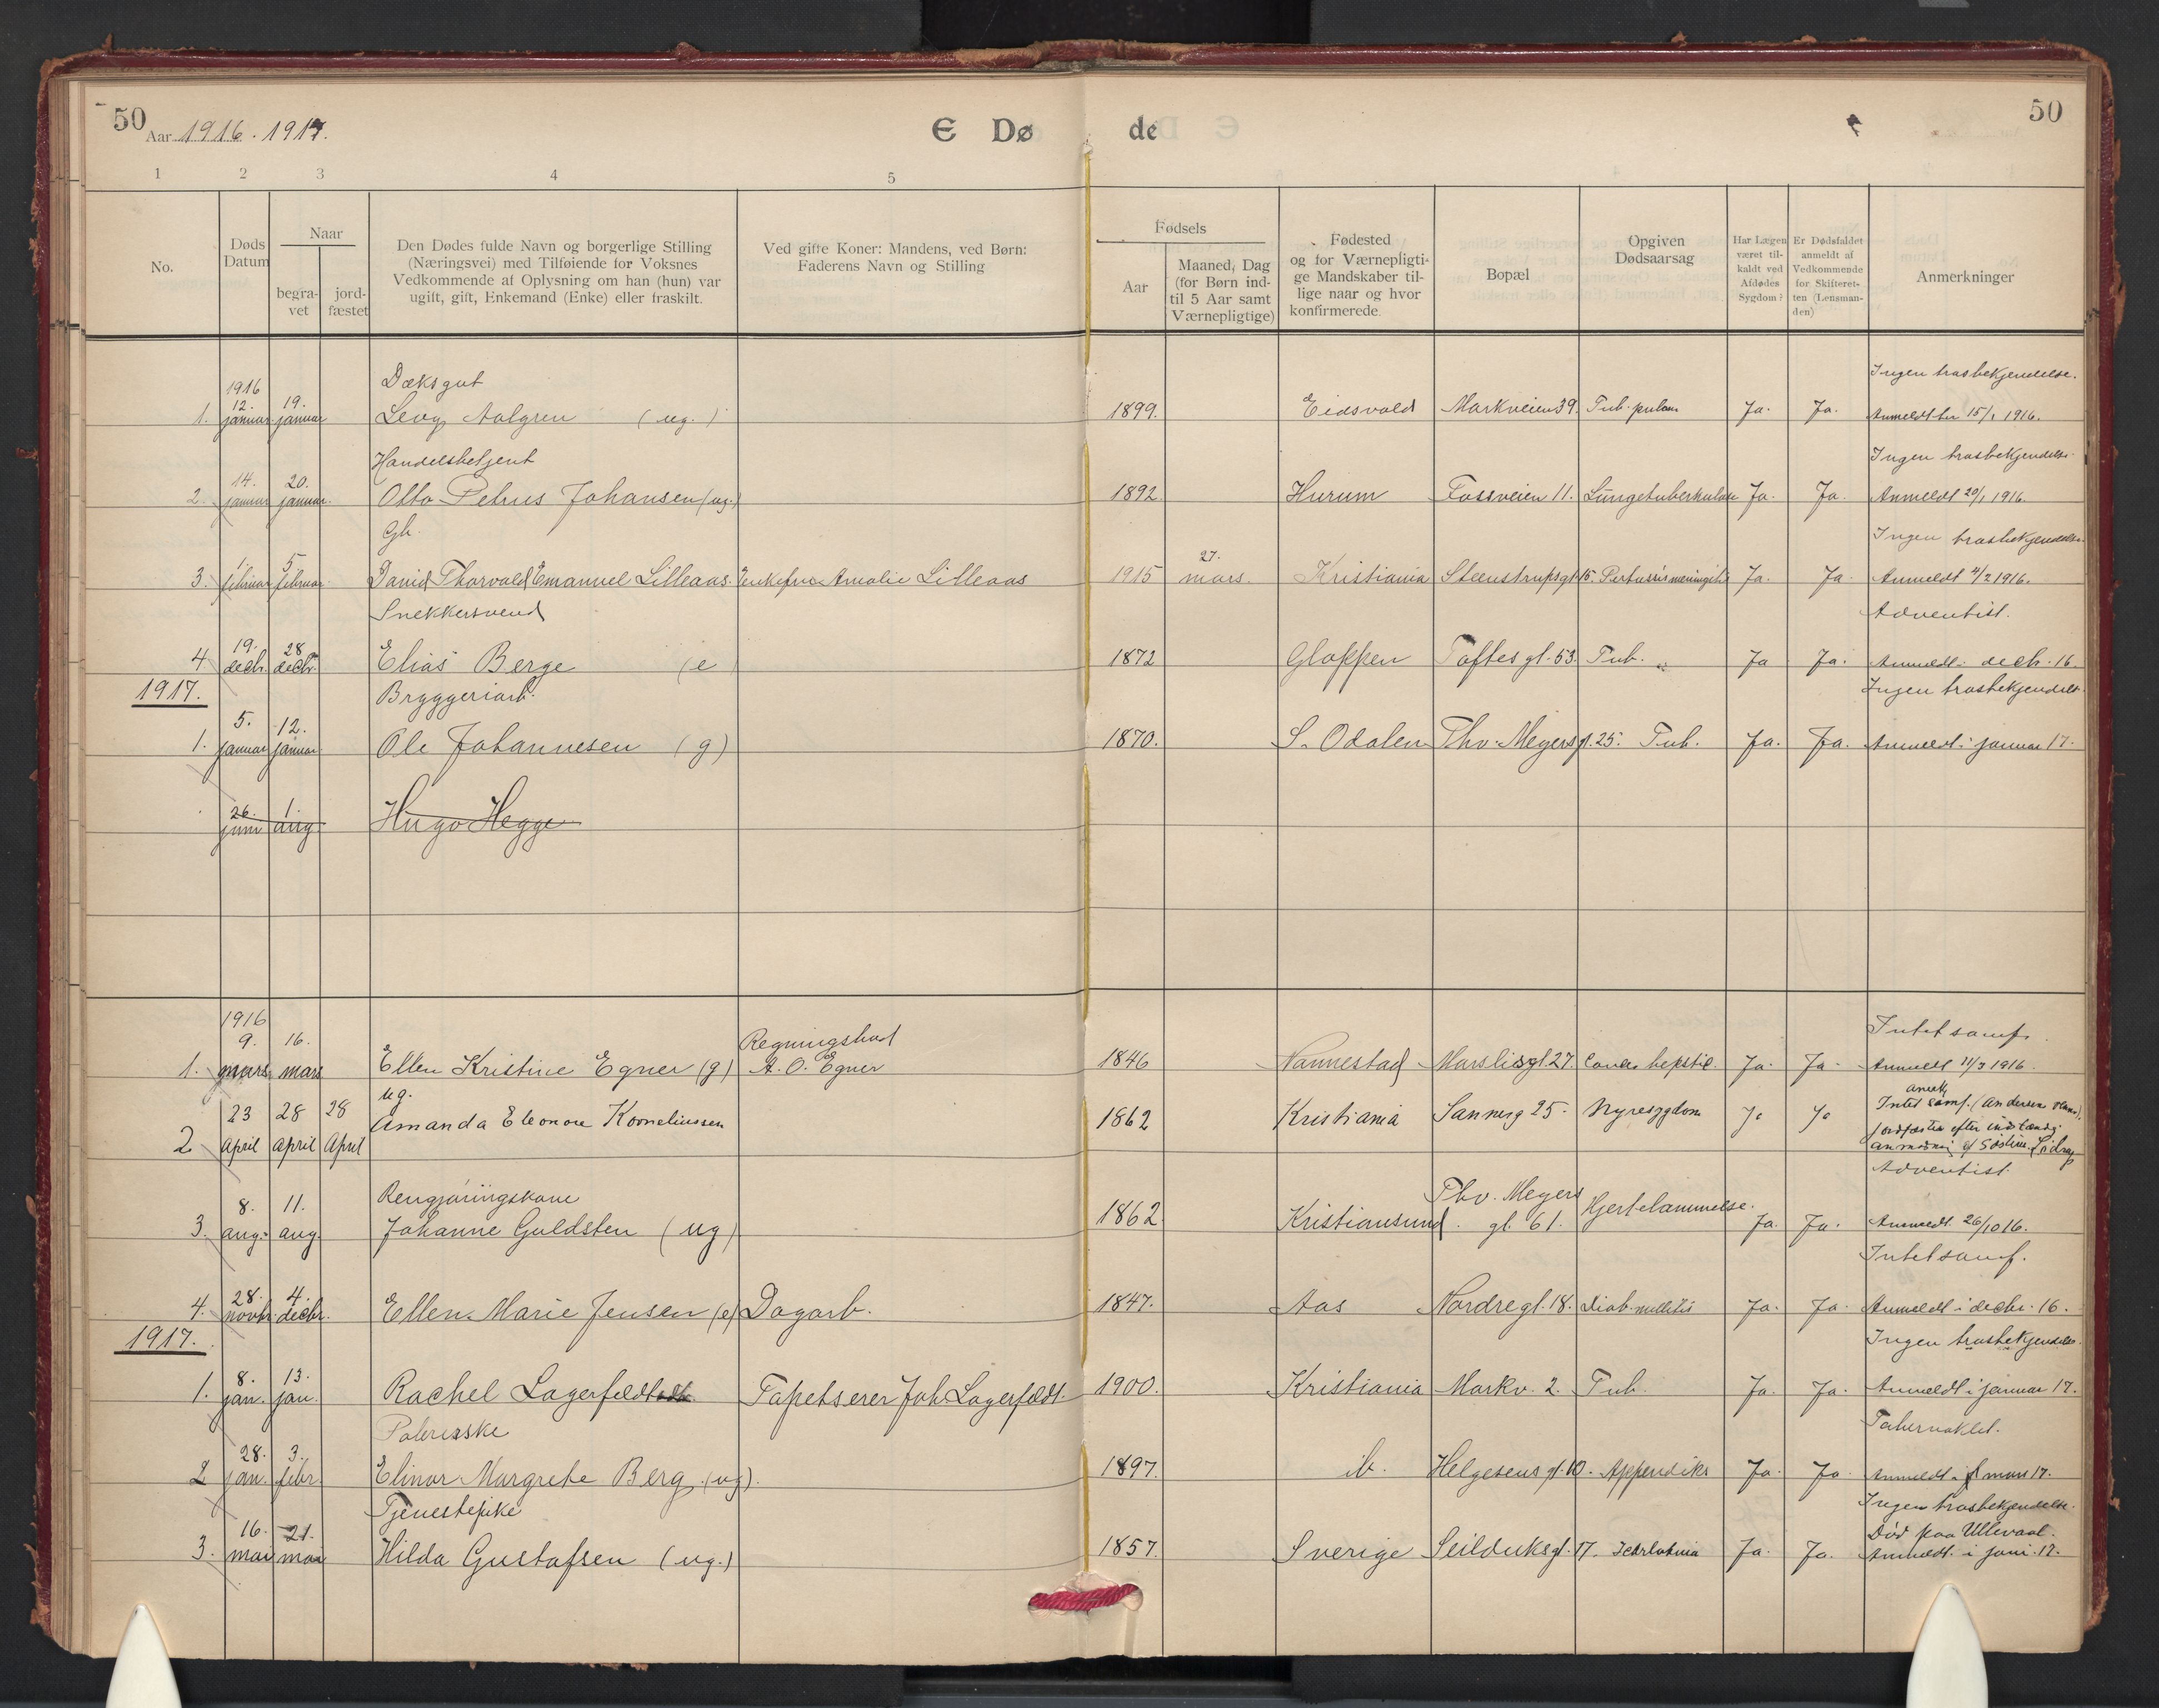 50 Aar 1916. 1917. E Dø de 50
1 2 3 4 5
No.
Døds Datum
Naar
begravet
jordfæstet
Den Dødes fulde Navn og borgerlige Stilling
(Næringsvei) med Tilføiende for Voksnes
Vedkommende af Oplysning om han (hun) var
ugift, gift, Enkemand (Enke) eller fraskilt.
Ved gifte Koner: Mandens, ved Børn:
Faderens Navn og Stilling
Fødsels
Aar
Maaned, Dag
(for Børn indtil 5 Aar samt
Værnepligtige)
Fødested
og for Værnepligtige Mandskaber tillige naar og hvor
konfirmerede.
Bopæl
Opgiven
Dødsaarsag
Har Lægen
været tilkaldt ved
Afdødes
Sygdom?
Er Dødsfaldet
anmeldt af
Vedkommende
for Skifteretten (Lensmanden)
Anmerkninger
1916 Dæksgut Ingen trosbekjendelse.
1. 12. januar 19. januar Levy Aalgren (ug.) 1899. Eidsvold Markveien 39. Tub. pulm Ja. Ja. Anmeldt 15/1 1916.
Handelsbetjent Ingen trosbekjendelse.
2. 14. januar 20. januar. Otto Petrus Johansen (ug.) 1892 Hurum Fossveien 11. Lungetuberkulose Ja. Ja. Anmeldt 20/1 1916.
Gb. Ingen trosbekjendelse.
3. 1. februar 5. februar. David Thorvald Emanuel Lilleaas. Enkefru Amalie Lilleaas 1915 27. mars. Kristiania Steenstrupsgt. 15. Pertussis meningitis Ja. Ja. Anmeldt 4/2 1916.
Snekkersvend Adventist.
4 19. decbr. 28 decbr. Elias Berge (e 1872 Gloppen Toftesgt. 53. Tub. Ja Ja. Anmeldt i decb. 16.
1917. Bryggeriarb. Ingen trosbekjendelse
1. 5. januar 12. januar. Ole Johannesen (g) 1870. S. Odalen Thv. Meyersgt. 25. Tub. Ja. Ja. Anmeldt i januar 17.
26. juni 1. aug Hugo Hegge
1916 Regningsbud Intet samf.
1. 9. mars 16. mars Ellen Kristine Egner (g) A. O. Egner 1846 Nannestad Marslisgt 27. Ja. Ja. Anmeldt 11/3 1916.
ug.
2 23 april 28 april 28 April Amanda Eleonore Korneliussen 1862 Kristiania Sannerg 25. Nyresygdom Ja Ja Intet samf.
Rengjøringskone Adventist
3. 8. aug. 11. aug. Johanne Guldsten (ug) 1862 Kristiansund. Thv. Meyers gt. 61. Hjertelammelse. Ja. Ja. Anmeldt. 26/10 16.
Intet samf.
4. 28. novbr. 4. decbr. Ellen Marie Jensen (e) Dagarb. 1847. Aas Nordregt. 18. Diab. mellitis Ja. Ja. Anmeldt i decbr. 16.
1917. Ingen trosbekjendelse.
1. 8. jan. 13. jan. Rachel Lagerfeldt Tapetserer Joh. Lagerfeldt. 1900. Kristiania Markv. 2. Tub. Ja. Ja. Anmeldt i januar 17.
Polererske Tabernaklet.
2 28. jan. 3. febr. Elinor Margrete Berg. (ug). 1897. ib. Helgesensgt. 10. Appendiks Ja. Ja. Anmeldt i mars 17.
Tjenestepike Ingen trosbekjendelse.
Død paa Ullevaal.
3. 16. mai 21. mai Hilda Gustafsen (ug.) 1857. Sverige Seilduksgt. 17. Ja. Ja. Anmeldt. i juni. 17.